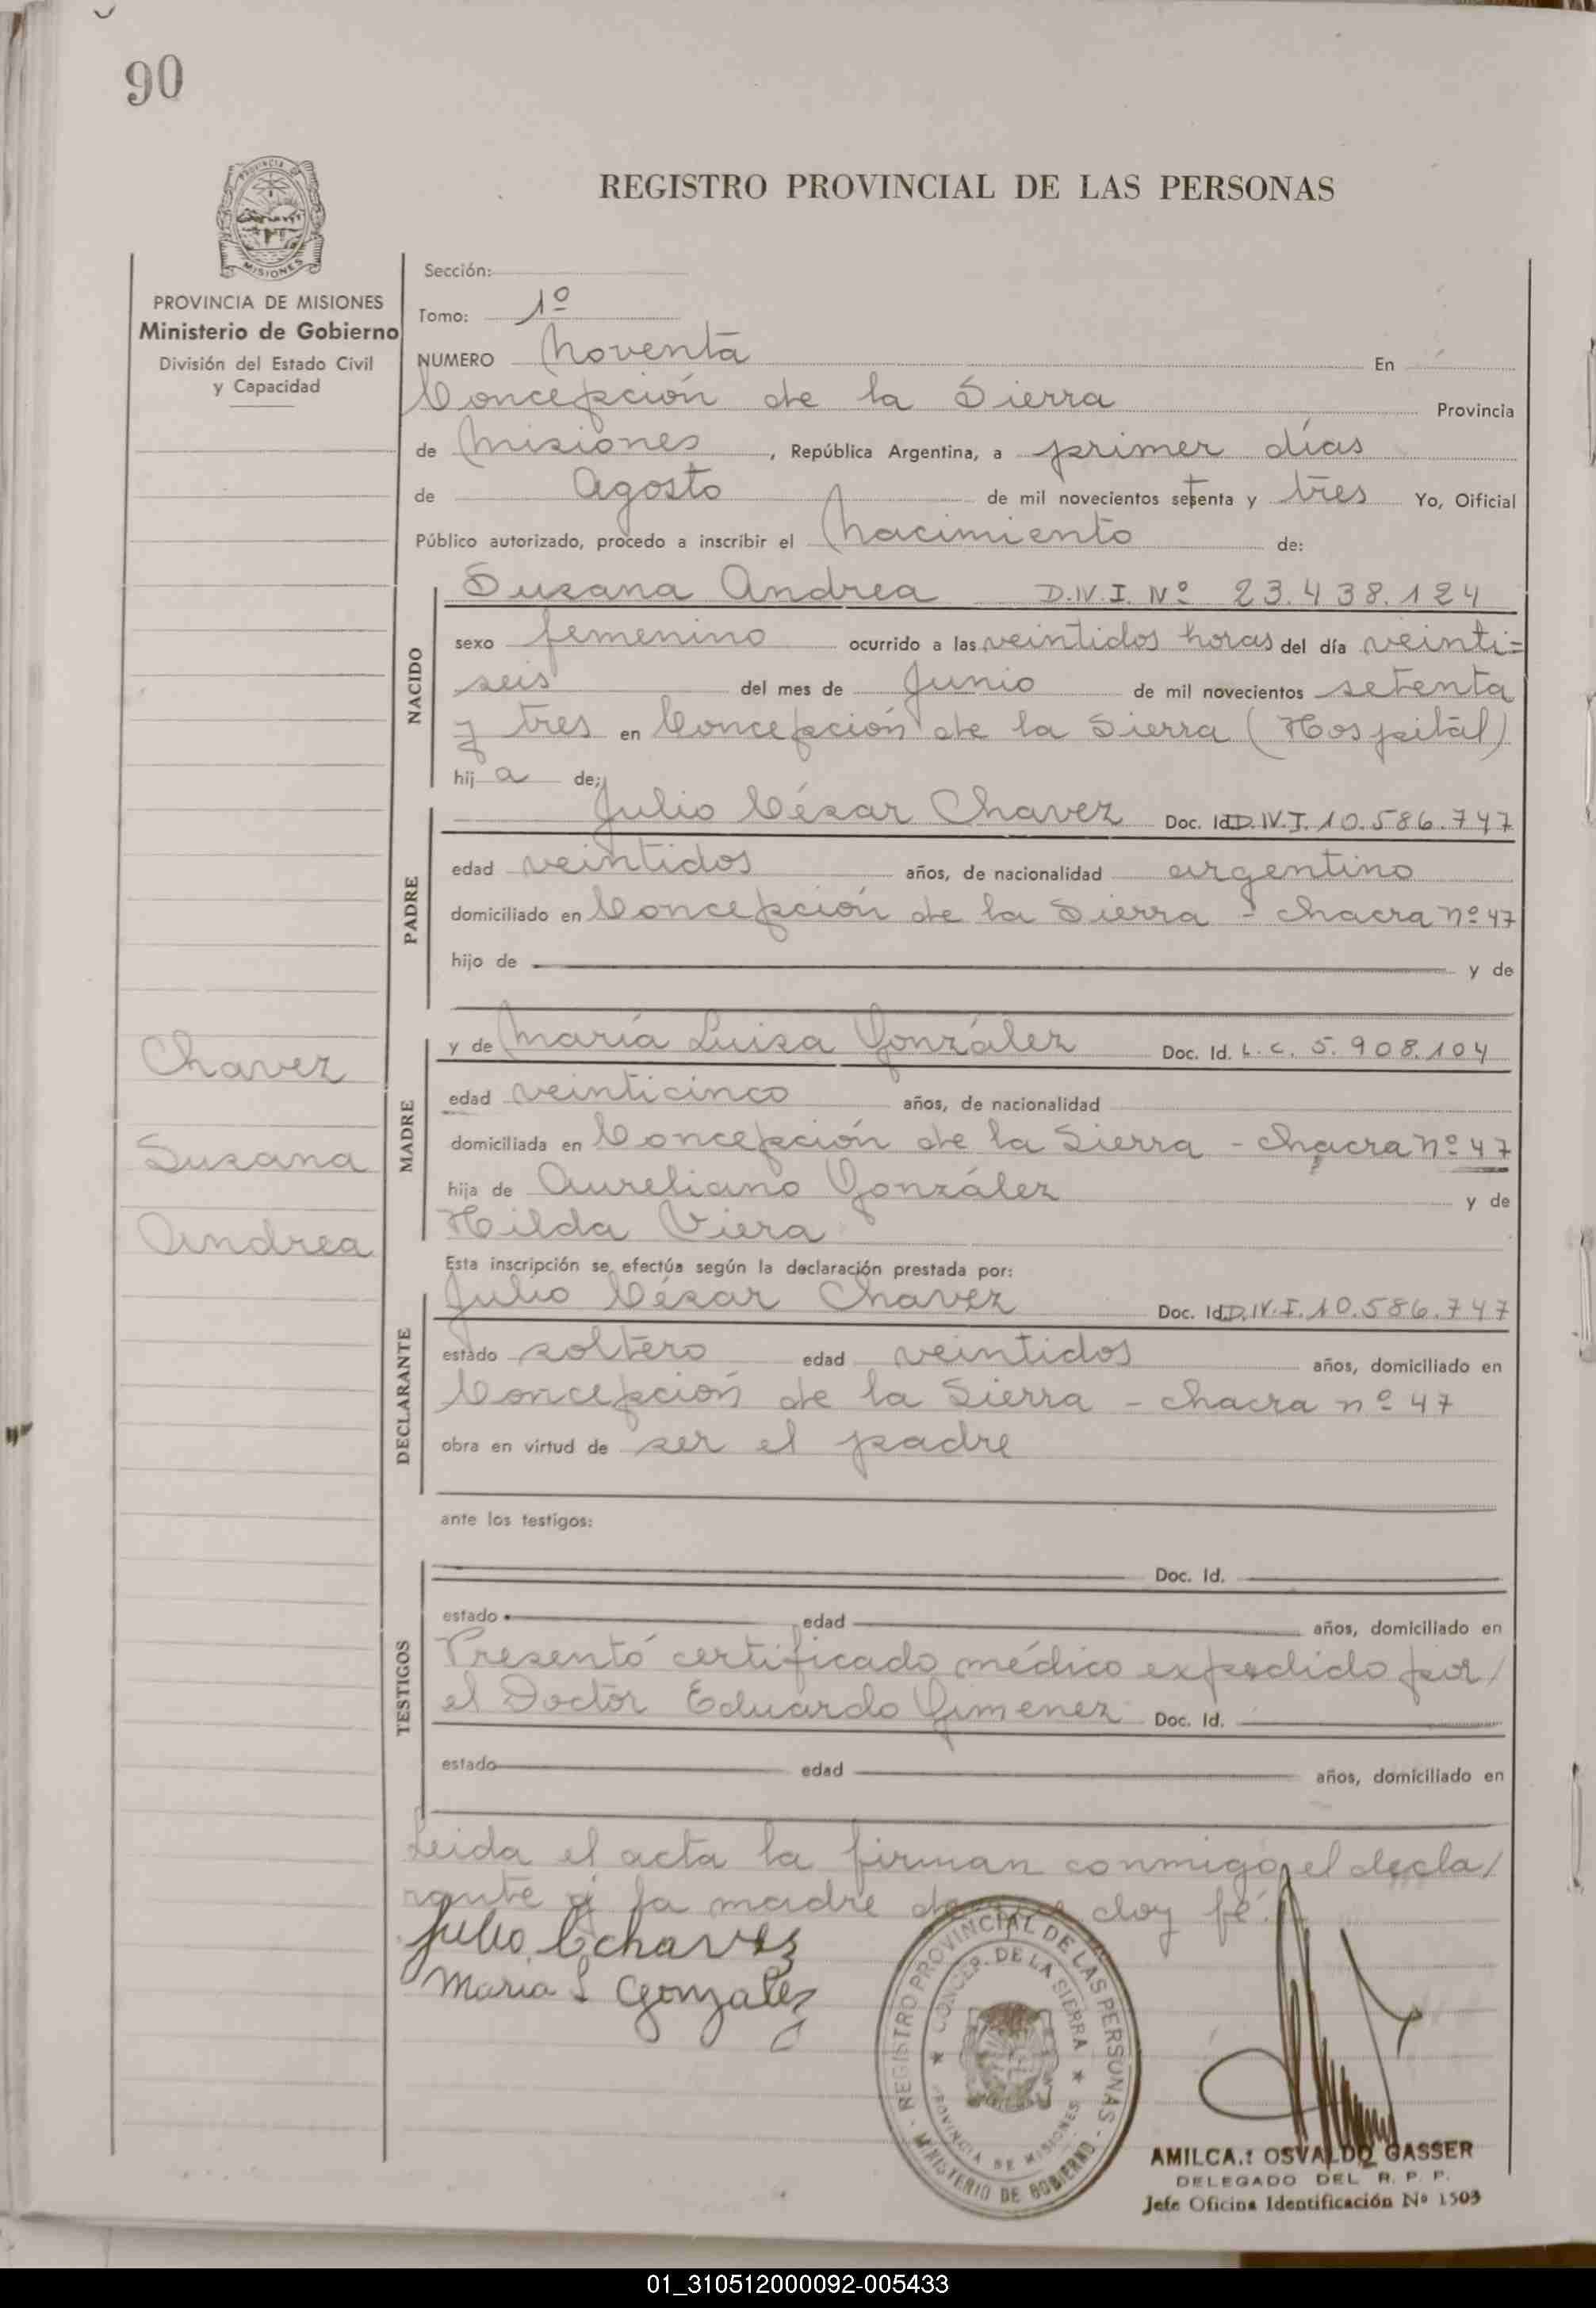 90
REGISTRO PROVINCIAL DE LAS PERSONAS
MISIONES
PROVINCIA DE MISIONES
Ministerio de Gobierno
División del Estado Civil
y Capacidad
Sección:
Tomo: 1º
NUMERO Noventa En
Concepción de la Sierra Provincia
de Misiones, República Argentina, a primer días
de Agosto de mil novecientos setenta y tres Yo, Oificial
Público autorizado, procedo a inscribir el Nacimiento de:
NACIDO
Susana Andrea D.N.I. Nº 23.438.124
sexo femenino ocurrido a las veintidos horas del día veinti=
seis del mes de Junio de mil novecientos setenta
y tres en Concepción de la Sierra (Hospital)
hij a de:
PADRE
Julio César Chavez Doc. Id. D.N.I. 10.586.747
edad veintidos años, de nacionalidad argentino
domiciliado en Concepción de la Sierra - chacra nº 47
hijo de y de
Chavez
Susana
Andrea
MADRE
y de María Luisa González Doc. Id. L.C. 5.908.104
edad veinticinco años, de nacionalidad
domiciliada en Concepción de la Sierra - chacra nº 47
hija de Aureliano González y de
Hilda Viera
Esta inscripción se efectúa según la declaración prestada por:
DECLARANTE
Julio César Chavez Doc. Id. D.N.I. 10.586.747
estado soltero edad veintidos años, domiciliado en
Concepción de la Sierra - chacra nº 47
obra en virtud de ser el padre
ante los testigos:
TESTIGOS
Doc. Id.
estado edad años, domiciliado en
Presentó certificado médico expedido por/
el Doctor Eduardo Gimenez Doc. Id.
estado edad años, domiciliado en
Leida el acta la firman conmigo, el decla/
rante y la madre de doy fé.
Julio C chavez
Maria L Gonzalez
REGISTRO PROVINCIAL DE LAS PERSONAS - MINISTERIO DE GOBIERNO -
CONCEP. DE LA SIERRA
PROVINCIA DE MISIONES
AMILCA.: OSVALDO GASSER
DELEGADO DEL R. P. P.
Jefe Oficina Identificación Nº 1503
01_310512000092-005433